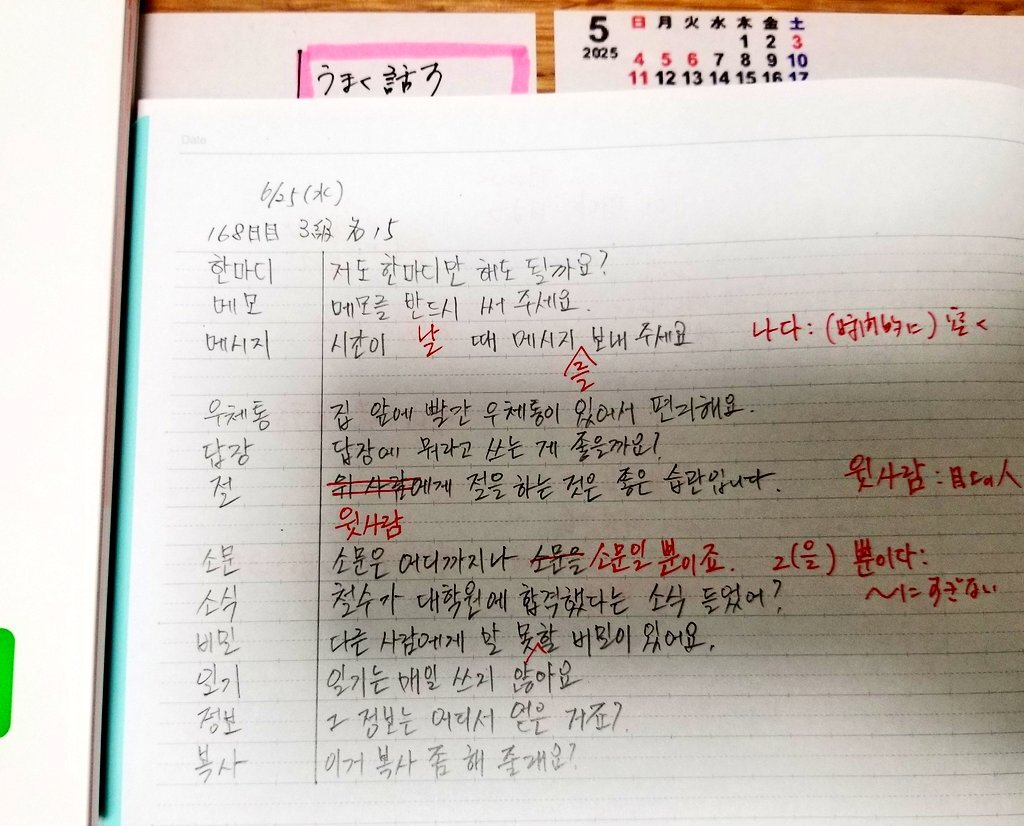 うまく話す
5
2025
日 月 火 水 木 金 土
1 2 3
4 5 6 7 8 9 10
11 12 13 14 15 16 17
Date
6/25(水)
168日目 3級 名15
한마디 저도 한마디만 해도 될까요?
메모 메모를 반드시 써 주세요.
메시지 시간이 날 때 메시지 보내 주세요 나다: (時間的に) 空く
를
우체통 집 앞에 빨간 우체통이 있어서 편리해요.
답장 답장에 뭐라고 쓰는 게 좋을까요?
절 위 사람에게 절을 하는 것은 좋은 습관입니다. 윗사람: 目上の人
윗사람
소문 소문은 어디까지나 소문을 소문일 뿐이죠. ㄹ(을) 뿐이다:
소식 철수가 대학원에 합격했다는 소식 들었어? ~にすぎない
비밀 다른 사람에게 말 못할 비밀이 있어요.
일기 일기는 매일 쓰지 않아요
정보 그 정보는 어디서 얻은 거죠?
복사 이거 복사 좀 해 줄래요?